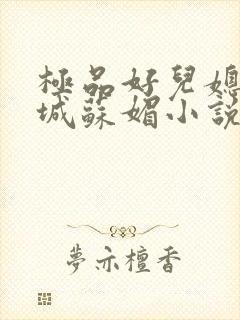 極品好兒媳
城蘇媚小說
夢亦檀香